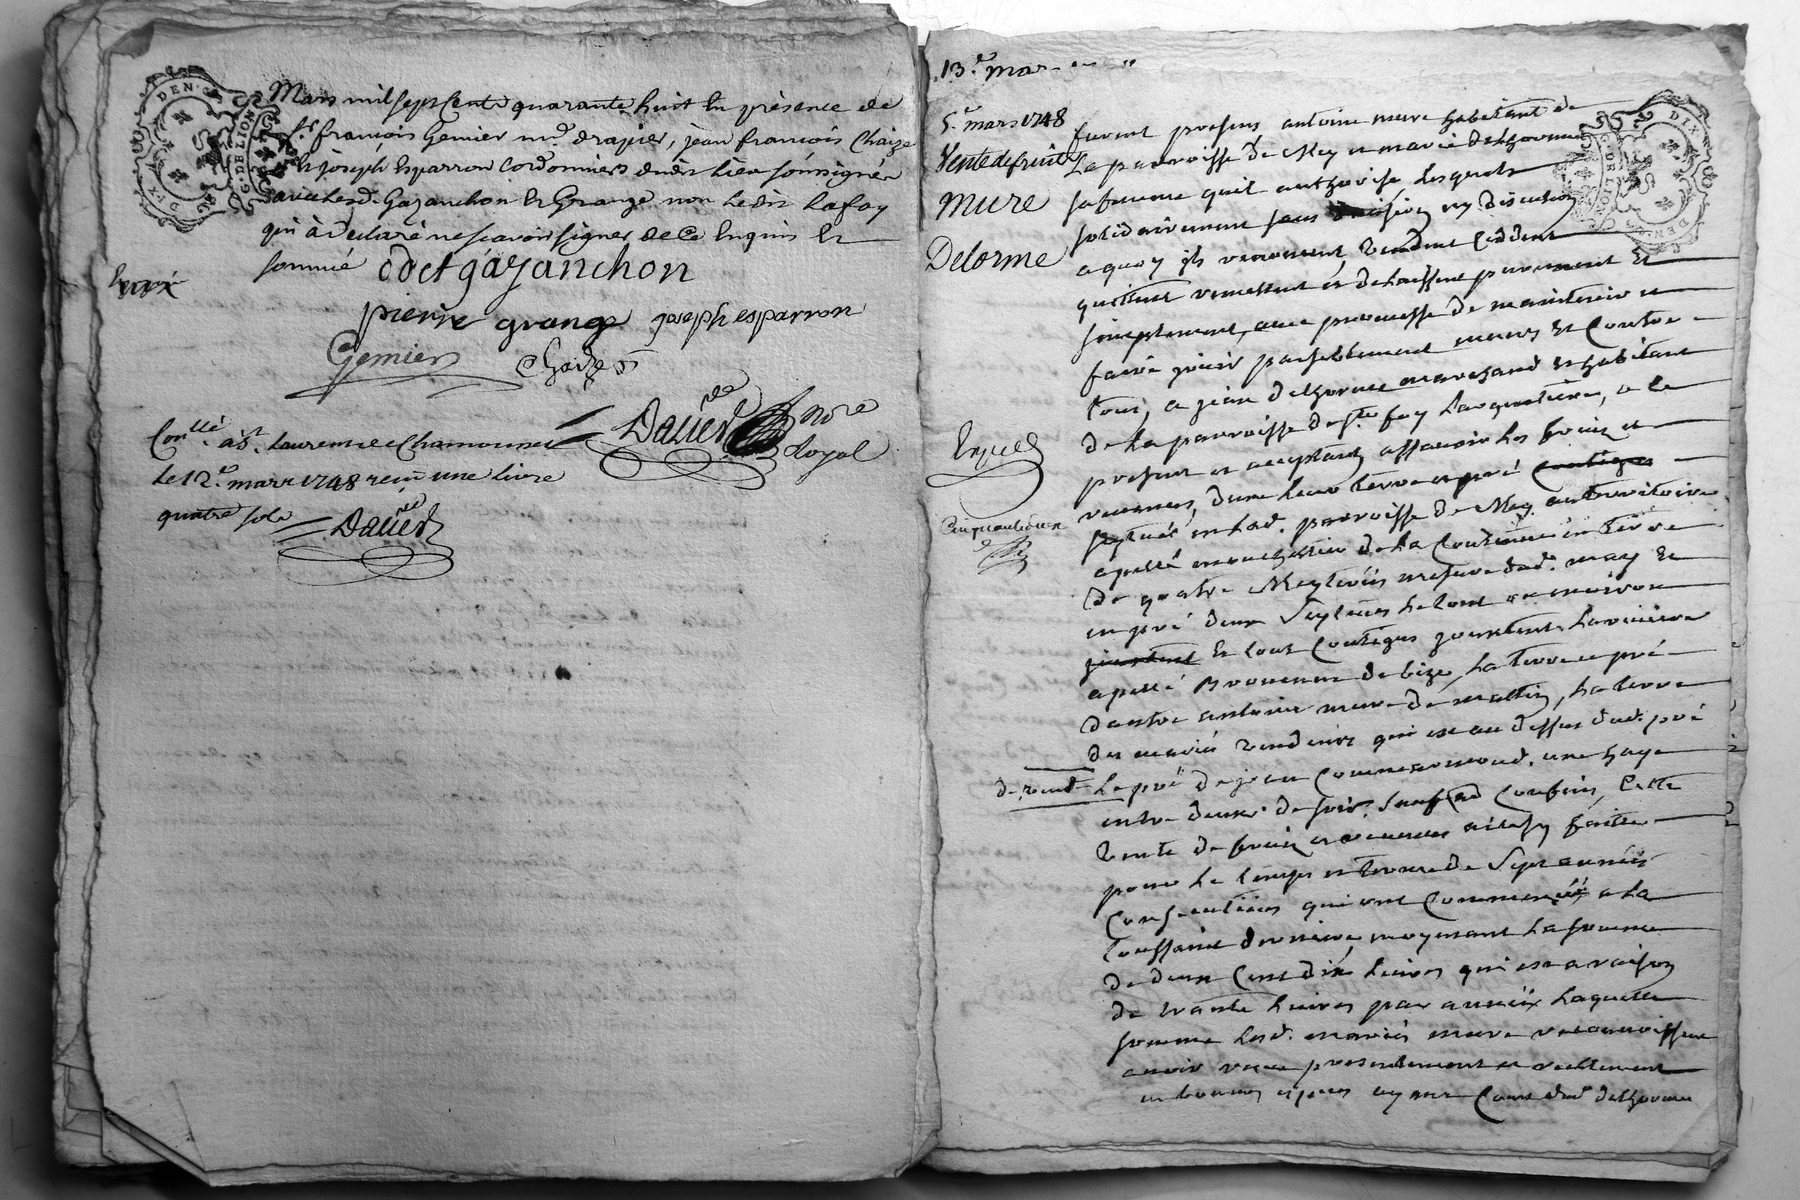 DEN.
G. DE LION
DIX
Mars mil sept cents quarante huit En présence de
Sr. françois Gemier md. drapier, jean françois Chaize
Et joseph Esparron Cordonniers dudit lieu soussignés
avec lesd. Gazanchon Et Grange non ledit Lafay
qui à declaré ne scavoir signer de Ce Enquis Et
sommé
odet gazanchon
pierre grange joseph esparron
Gemier Chaize
Dauer nore
Royal
Conllé. à St. Laurent de Chamousset
le 12e. mars 1748 reçu une livre
quatre sols
Dauer
13e mar
5e. mars 1748
Vente de fruits
Mure
Delorme
furent presens antoine mure habitant de
La parroisse de Mey et marie delhorme
sa femme quil authorise Lesquels
solidairement sans division ny discution
a quoy ils renoncent, Vendent Ceddent
quittent remettent et delaissent purement Et
simplement, avec promesse de maintenir et
faire jouir paisiblement envers Et Contre
tous, a jean delhorme marchand Et habitant
de La parroisse de Ste foy Largentiere, a ce
present et acceptant, assavoir les fruits et
revenus, d'une terre et pré contigus
scitués en Lad. parroisse de Mey au territoire
apellé de La Contenue en terre
de quatre mesure dud. may Et
en pré deux Le tout environ
joustent Et tout Contigus joustent La riviere
apellé de bize, La terre et pré
dautre antoine mure de mattin, La terre
des mariés vendeurs qui est au dessus dud. pré
de vend.
Le pré de jean une haye
entre deux de soir, sauf Confins, Cette
Vente de fruits et revenus ainsy faitte
pour le temps et terme de Sept années
Consecutives qui ont Commencés a La
toussaint derniere, moyenant La somme
de deux Cent dix Livres qui est a raison
de trante Livres par année Laquelle
somme Lesd. mariés mure reconnoissent
avoir reçue presentement et réellement
en bonnes especes Cours dud. delhorme